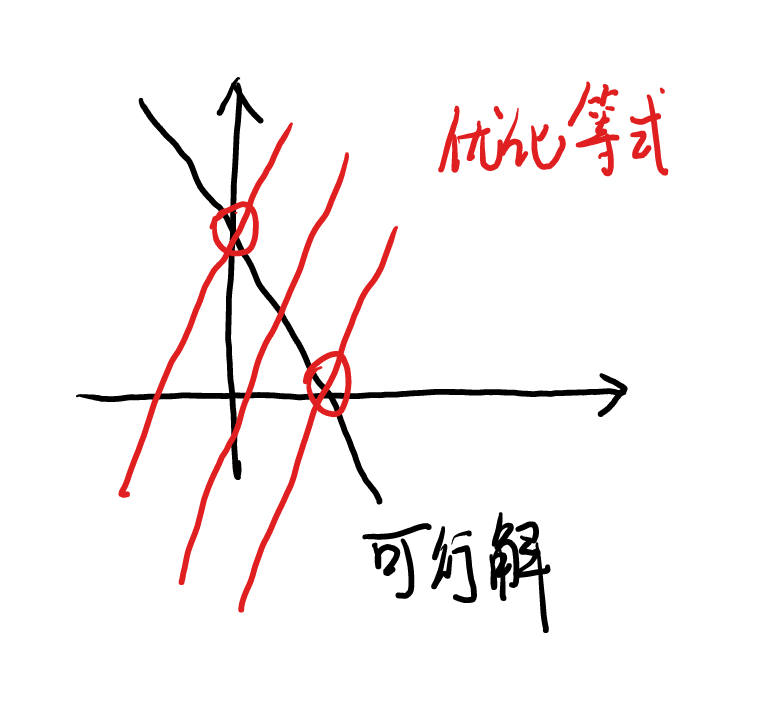 优化等式
可行解